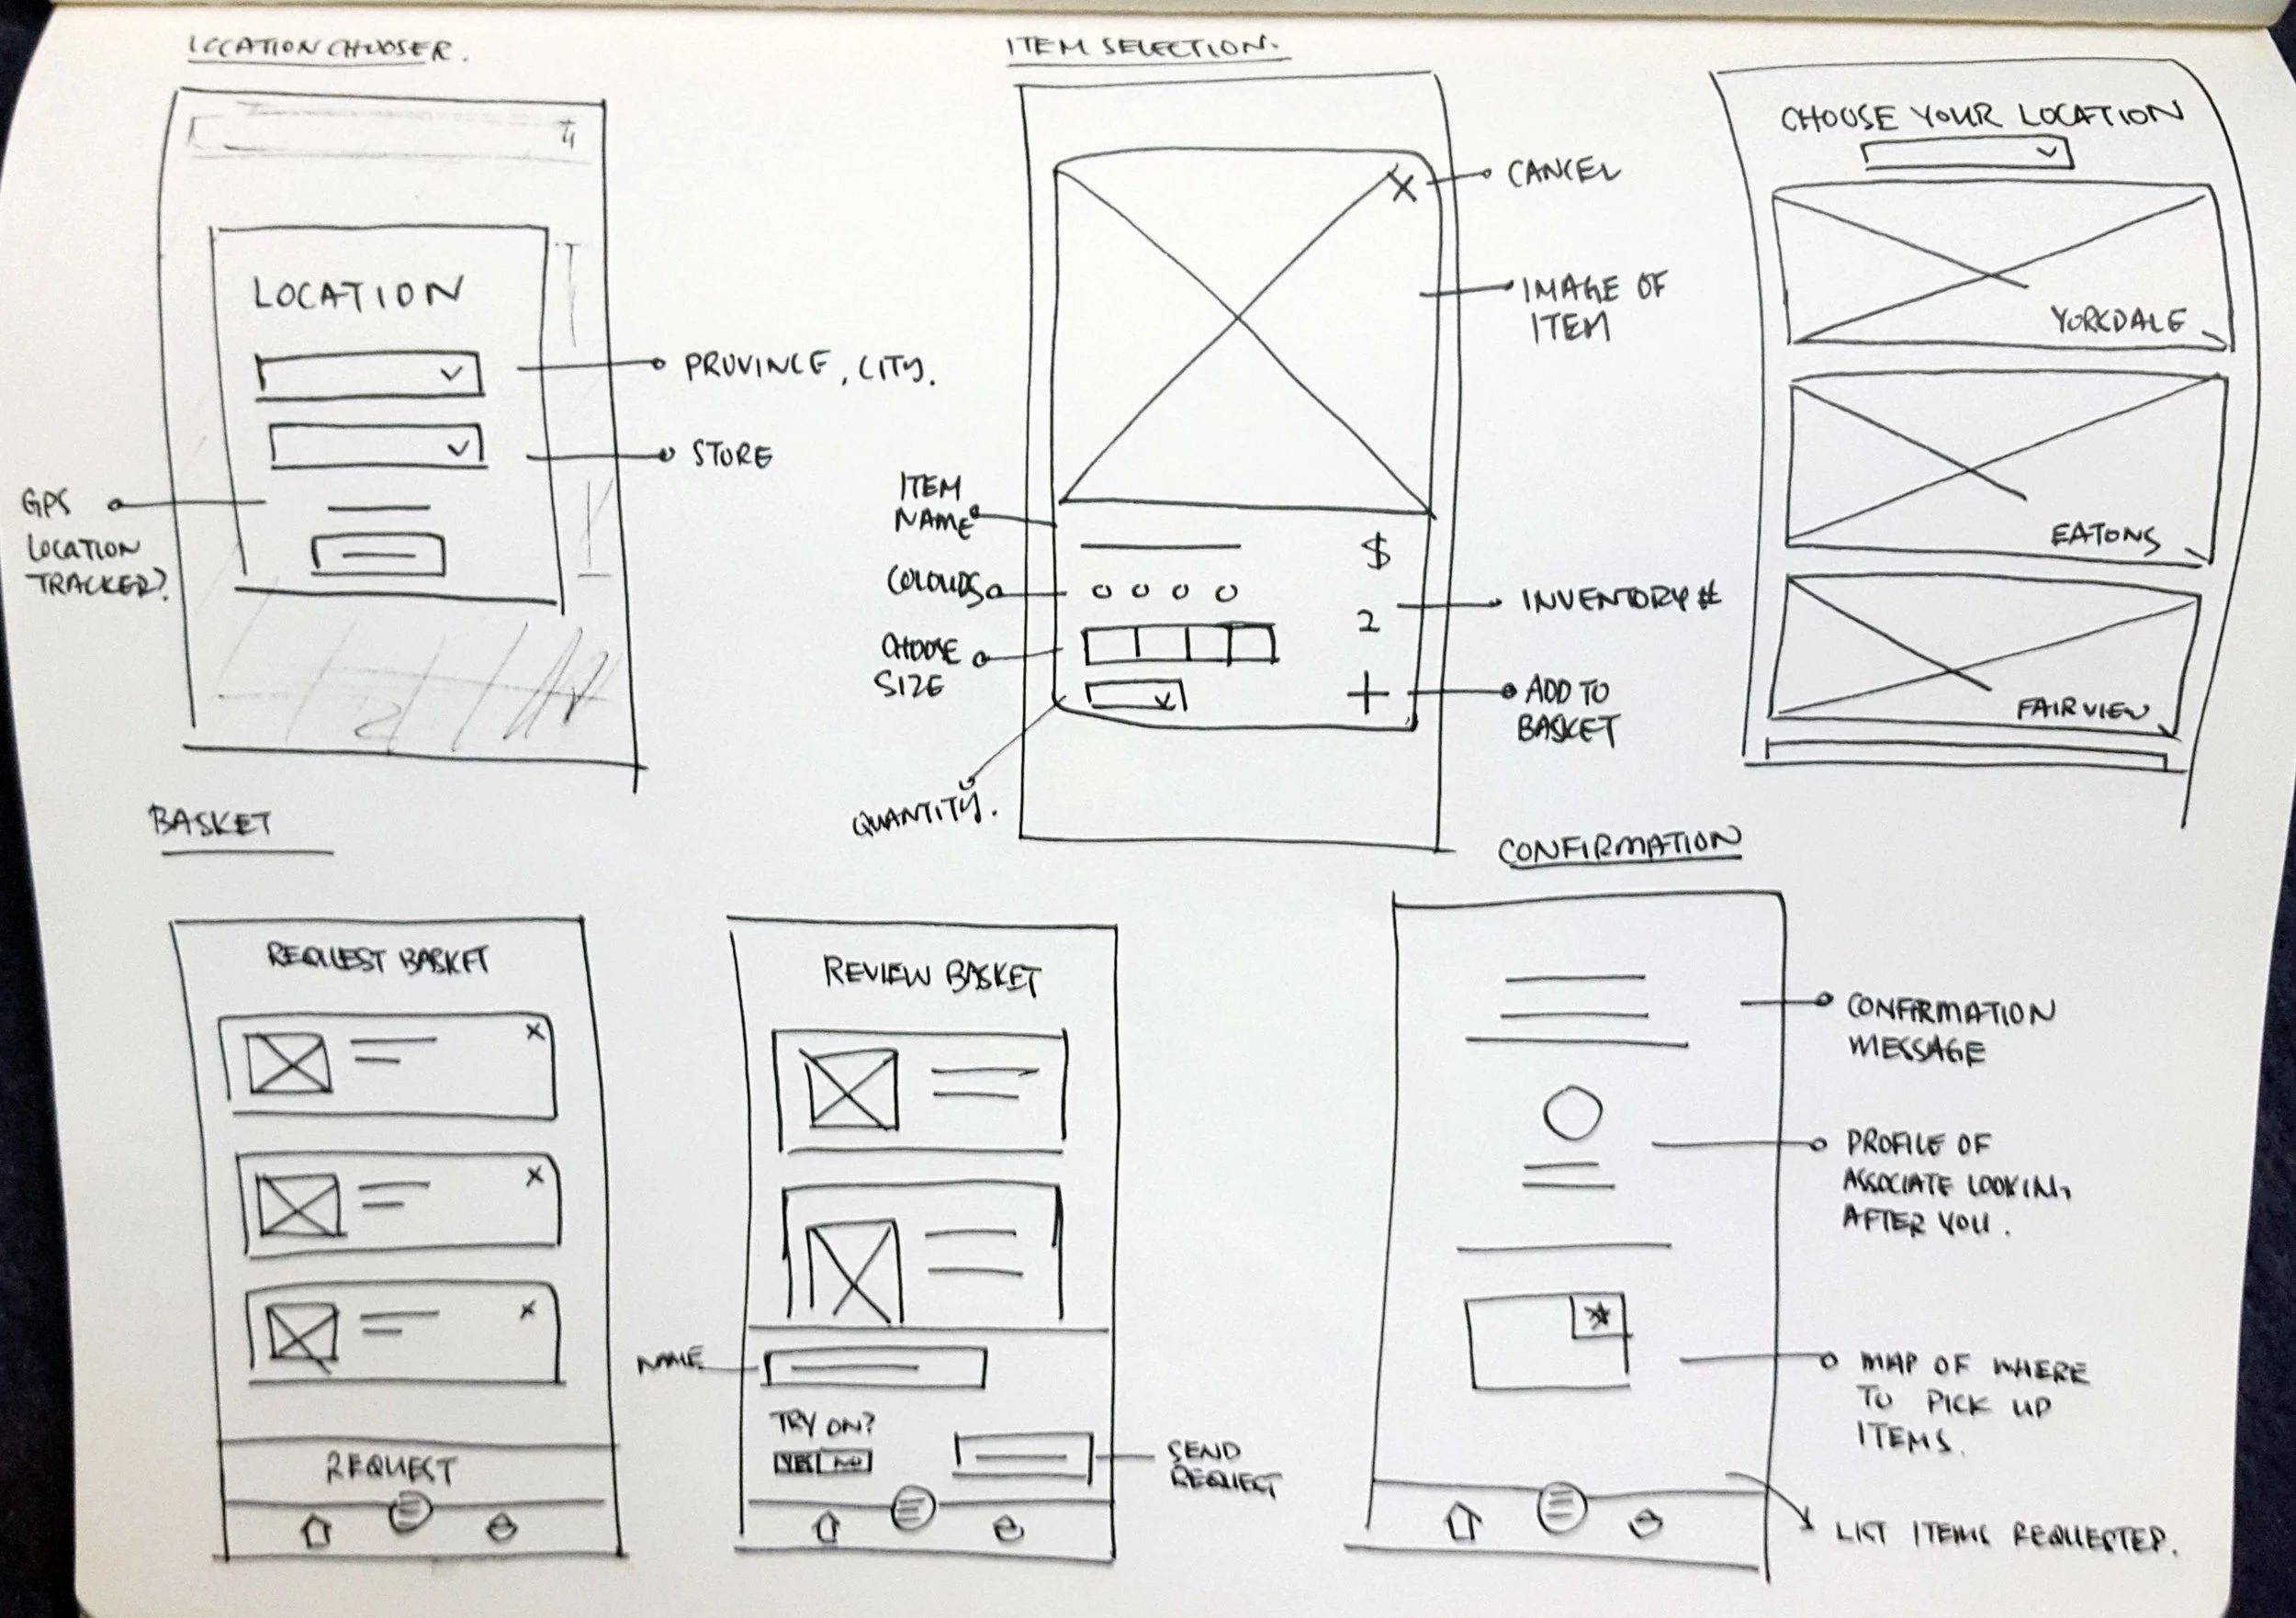 LOCATION CHOOSER.
LOCATION
PROVINCE, CITY.
STORE
GPS
LOCATION
TRACKER?
ITEM SELECTION.
X
CANCEL
IMAGE OF
ITEM
ITEM
NAME
$
COLOURS
INVENTORY #
2
CHOOSE
SIZE
+
ADD TO
BASKET
QUANTITY.
CHOOSE YOUR LOCATION
YORKDALE
EATONS
FAIRVIEW
BASKET
REQUEST BASKET
X
X
X
REQUEST
REVIEW BASKET
NAME
TRY ON?
YES NO
SEND
REQUEST
CONFIRMATION
CONFIRMATION
MESSAGE
PROFILE OF
ASSOCIATE LOOKING
AFTER YOU.
MAP OF WHERE
TO PICK UP
ITEMS.
LIST ITEMS REQUESTED.